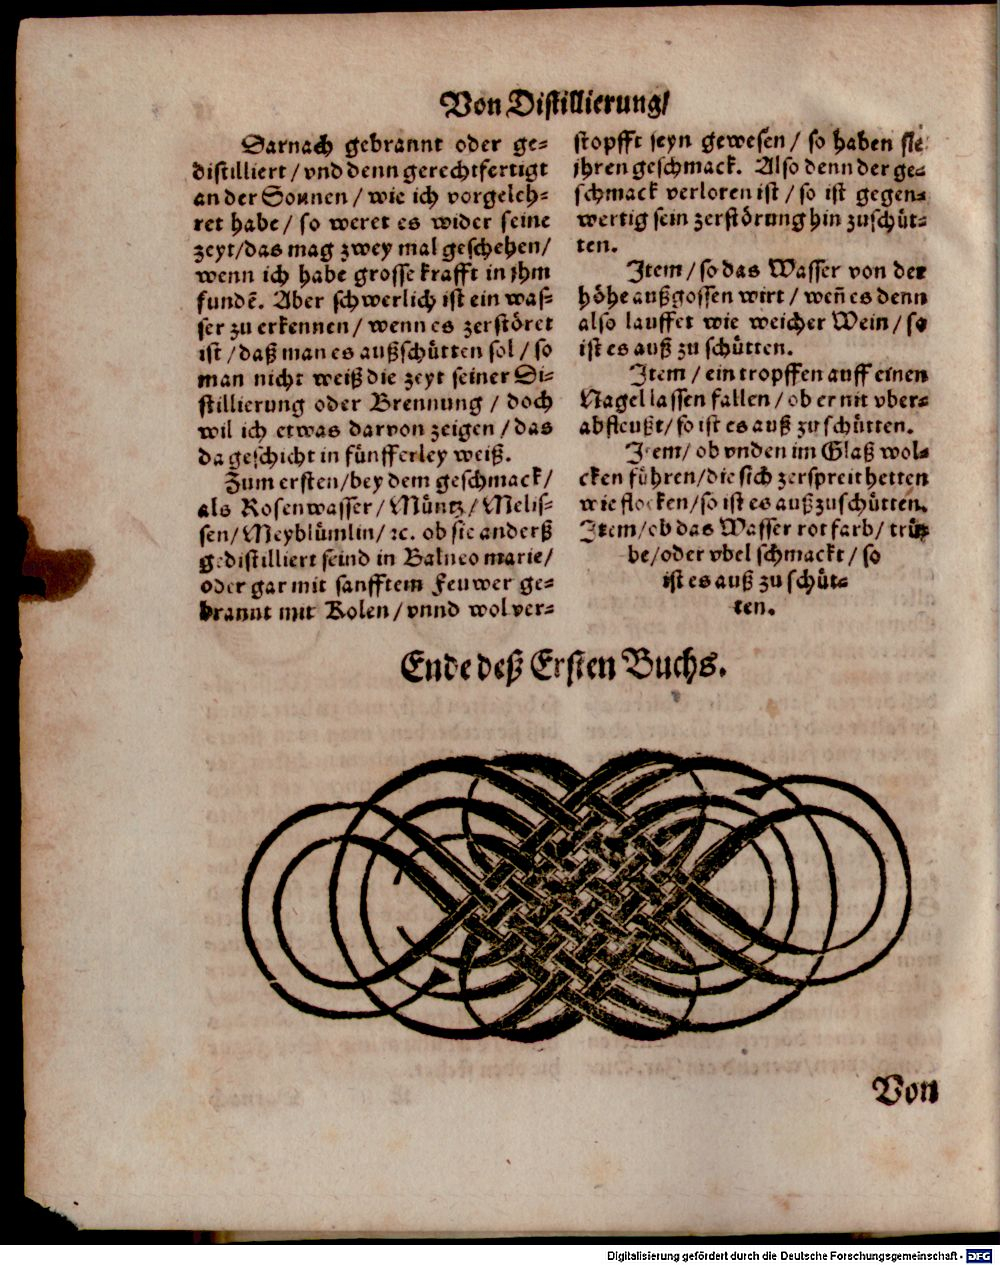 Von Distillierung/
Darnach gebrannt oder ge-
distilliert / vnd denn gerechtfertigt
an der Sonnen / wie ich vorgeleh-
ret habe / so weret es wider seine
zeyt/das mag zwey mal geschehen/
wenn ich habe grosse krafft in jhm
fundē. Aber schwerlich ist ein was-
ser zu erkennen / wenn es zerstöret
ist / daß man es außschütten sol / so
man nicht weiß die zeyt seiner Di-
stillierung oder Brennung / doch
wil ich etwas darvon zeigen / das
da geschicht in fünfferley weiß.
Zum ersten/bey dem geschmack/
als Rosenwasser / Müntz / Melis-
sen/Meyblümlin/ ꝛc. ob sie anderß
gedistilliert seind in Balneo marie/
oder gar mit sanfftem Feuwer ge-
brannt mit Kolen / vnnd wol ver-
stopfft seyn gewesen / so haben sie
jhren geschmack. Also denn der ge-
schmack verloren ist / so ist gegen-
wertig sein zerstörung hin zuschüt-
ten.
Item / so das Wasser von der
höhe außgossen wirt / weñ es denn
also lauffet wie weicher Wein / so
ist es auß zu schütten.
Item / ein tropffen auff einen
Nagel lassen fallen / ob er nit vber-
abfleußt/so ist es auß zu schütten.
Item/ ob vnden im Glaß wol-
cken führen/die sich zerspreit hetten
wie flocken/so ist es außzuschütten.
Item/ob das Wasser rot farb/ trü-
be/oder vbel schmackt / so
ist es auß zu schüt-
ten.
Ende deß Ersten Buchs.
Von
Digitalisierung gefördert durch die Deutsche Forschungsgemeinschaft - DFG